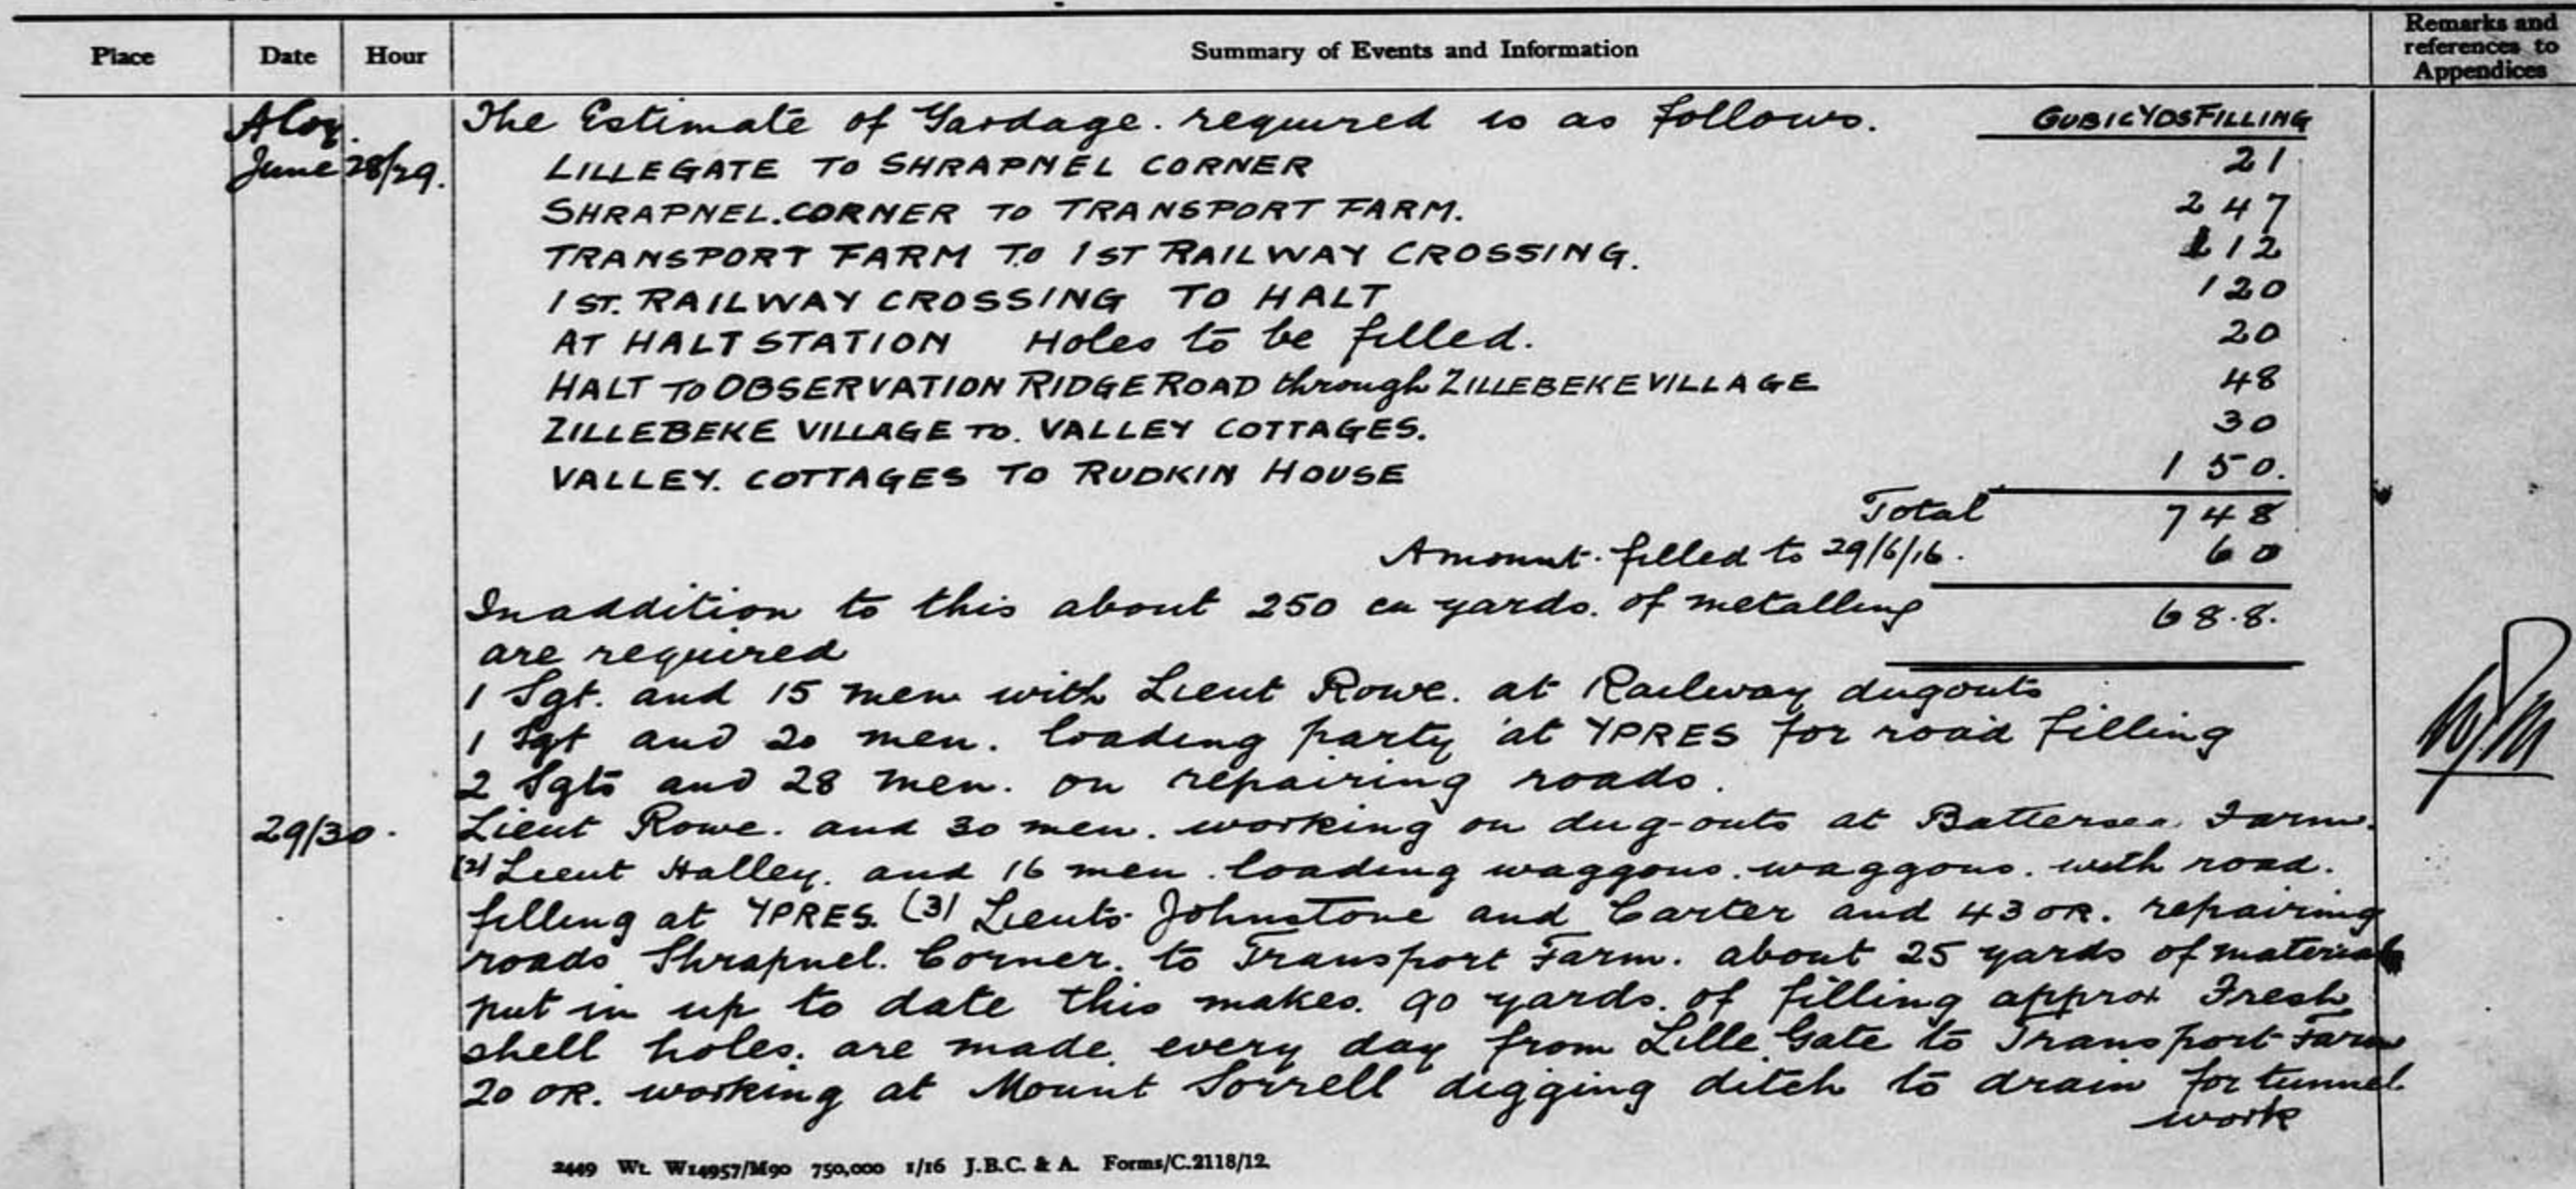 Place Date Hour Summary of Events and Information Remarks and references to Appendices
The Estimate of Yardage. required is as follows. CUBICYDSFILLING
June 28/29. LILLEGATE TO SHRAPNEL CORNER 21
SHRAPNEL.CORNER TO TRANSPORT FARM. 247
TRANSPORT FARM TO 1ST RAILWAY CROSSING. 112
1ST. RAILWAY CROSSING TO HALT 120
AT HALT STATION Holes to be filled. 20
HALT TO OBSERVATION RIDGE ROAD through ZILLEBEKE VILLAGE 48
ZILLEBEKE VILLAGE TO. VALLEY COTTAGES. 30
VALLEY. COTTAGES TO RUDKIN HOUSE 150.
Total 748
Amount. filled to 29/6/16. 60
Inaddition to this about 250 cu yards. of metalling 68.8.
are required
1 Sgt. and 15 men with Lieut Rowe. at Railway dugouts
1 Sgt and 20 men. loading party at YPRES for road filling
2 Sgts and 28 men. on repairing roads.
29/30. Lieut Rowe. and 30 men. working on dug-outs at Battersea Farm.
(2) Lieut Halley. and 16 men. loading waggons. waggons. with road.
filling at YPRES. (3) Lieuts Johnstone and Carter and 43 OR. repairing
roads Shrapnel. Corner. to Transport Farm. about 25 yards of materials
put in up to date this makes. 90 yards. of filling approx Fresh
shell holes. are made. every day from Lille Gate to Transport Farm
20 OR. working at Mount Sorrell digging ditch to drain for tunnel
work
2449 Wt. W14957/M90 750,000 1/16 J.B.C. & A. Forms/C.2118/12.